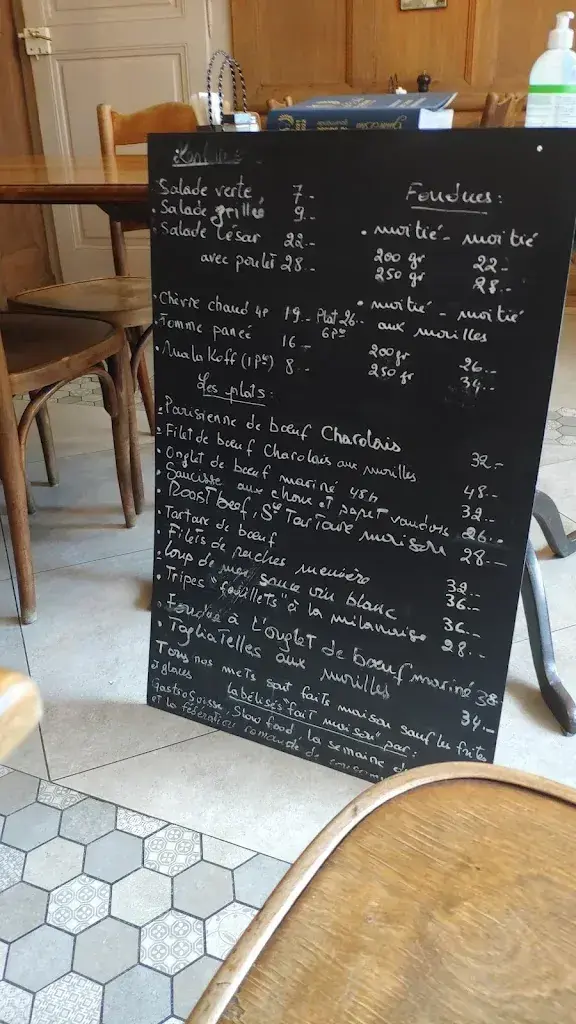 Salade verte 7.-
• Salade grillé 9.-
• Salade César 22.-
avec poulet 28.-
• Chèvre chaud 4P 19.- Plat 26.-
6 Pce
Tomme paneé 16.-
• Malakoff (1 Pce) 8.-
Fondues:
• moitié - moitié
200 gr 22.-
250 gr 28.-
• moitié - moitié
aux morilles
200 gr 26.-
250 gr 34.-
Les plats:
• Parisienne de bœuf Charolais 32.-
• Filet de bœuf Charolais aux morilles 48.-
• Onglet de bœuf mariné 48h 32.-
• Saucisse aux choux et papet vaudois 26.-
• Roast beef, Sce Tartare maison 28.-
• Tartare de bœuf 32.-
• Filets de perches meunière 36.-
• Loup de mer sauce vin blanc 36.-
• Tripes "feuillets" à la milanaise 28.-
• Fondue à l'onglet de bœuf mariné 38.-
• Tagliatelles aux morilles 34.-
Tous nos mets sont faits maison sauf les frites
& glaces labélisés "fait maison" par:
GastroSuisse, Slow food, la semaine d
et la fédération romande de